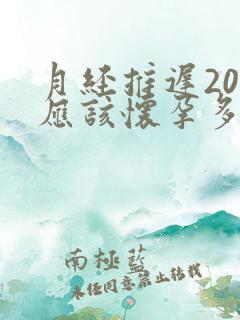 月经推遲20
應該懷孕多
南極藍
未经同意禁止转载